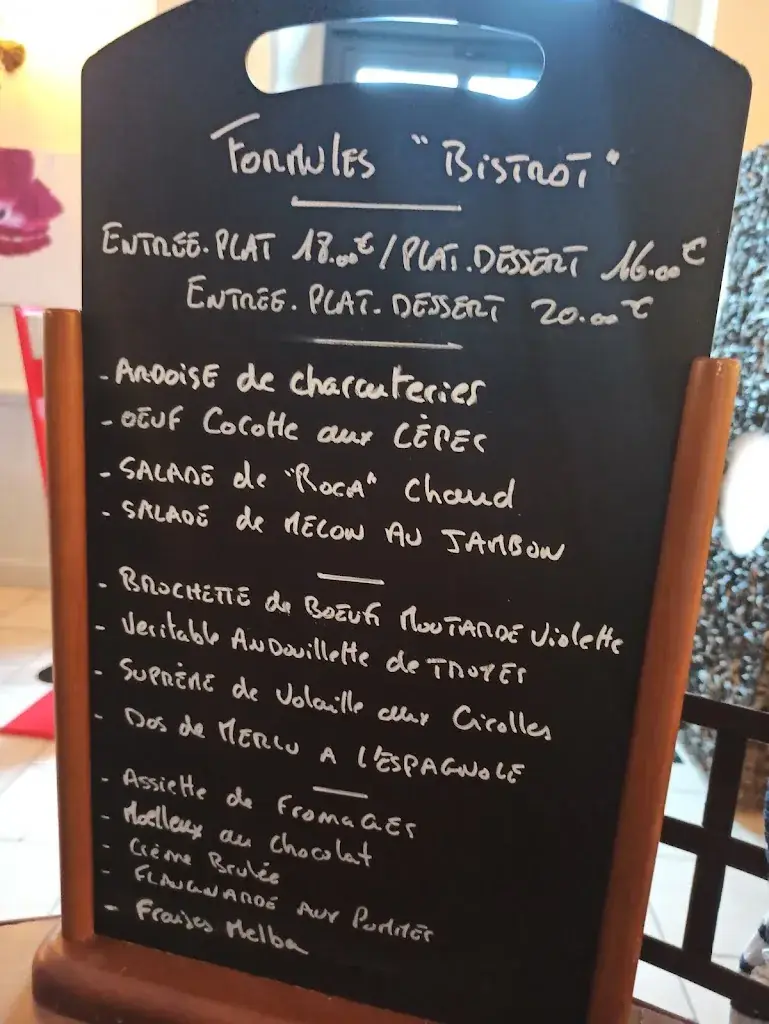 Formules "Bistrot"
Entrée.Plat 18.00€ / Plat.Dessert 16.00€
Entrée.Plat.Dessert 20.00€
- Ardoise de charcuteries
- Oeuf Cocotte aux Cèpes
- Salade de "Roca" chaud
- Salade de Melon au Jambon
- Brochette de Boeuf Moutarde Violette
- Veritable Andouillette de Troyes
- Suprême de Volaille aux Girolles
- Dos de Merlu a l'Espagnole
- Assiette de Fromages
- Moelleux au Chocolat
- Crème Brulée
- Flaugnarde aux Pommes
- Fraises Melba